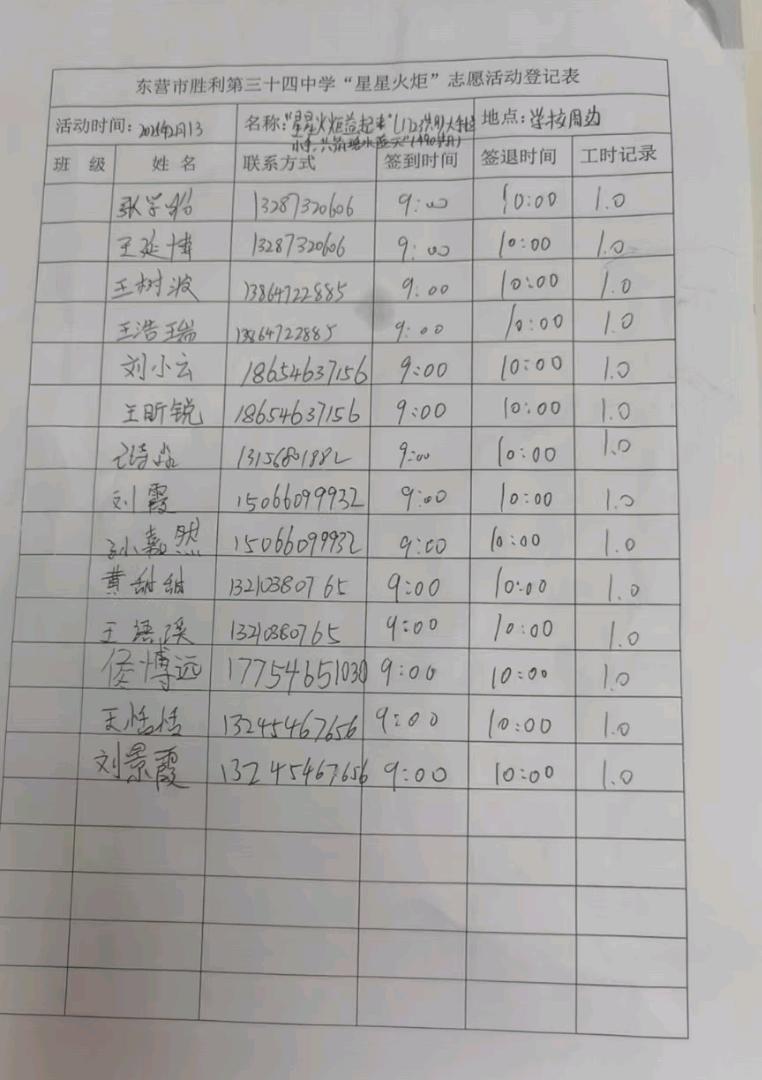 东营市胜利第三十四中学“星星火炬”志愿活动登记表
活动时间: 月13 名称:“星星火炬益起来” 地点:学校周边
班 级 姓 名 联系方式 签到时间 签退时间 工时记录
张学 13287320606 9:00 10:00 1.0
王延博 13287320606 9:00 10:00 1.0
王树波 13864722885 9:00 10:00 1.0
王浩瑞 13864722885 9:00 10:00 1.0
刘小云 18654637156 9:00 10:00 1.0
王昕锐 18654637156 9:00 10:00 1.0
9:00 10:00 1.0
刘霞 15066099932 9:00 10:00 1.0
孙嘉然 15066099932 9:00 10:00 1.0
黄甜甜 13210380765 9:00 10:00 1.0
王语溪 1321380765 9:00 10:00 1.0
侯博远 17754651030 9:00 10:00 1.0
王恬恬 13245467656 9:00 10:00 1.0
刘景霞 13245467656 9:00 10:00 1.0